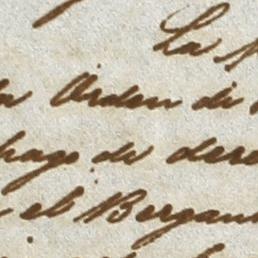 La
Orden de
pago de dere
el Bergan